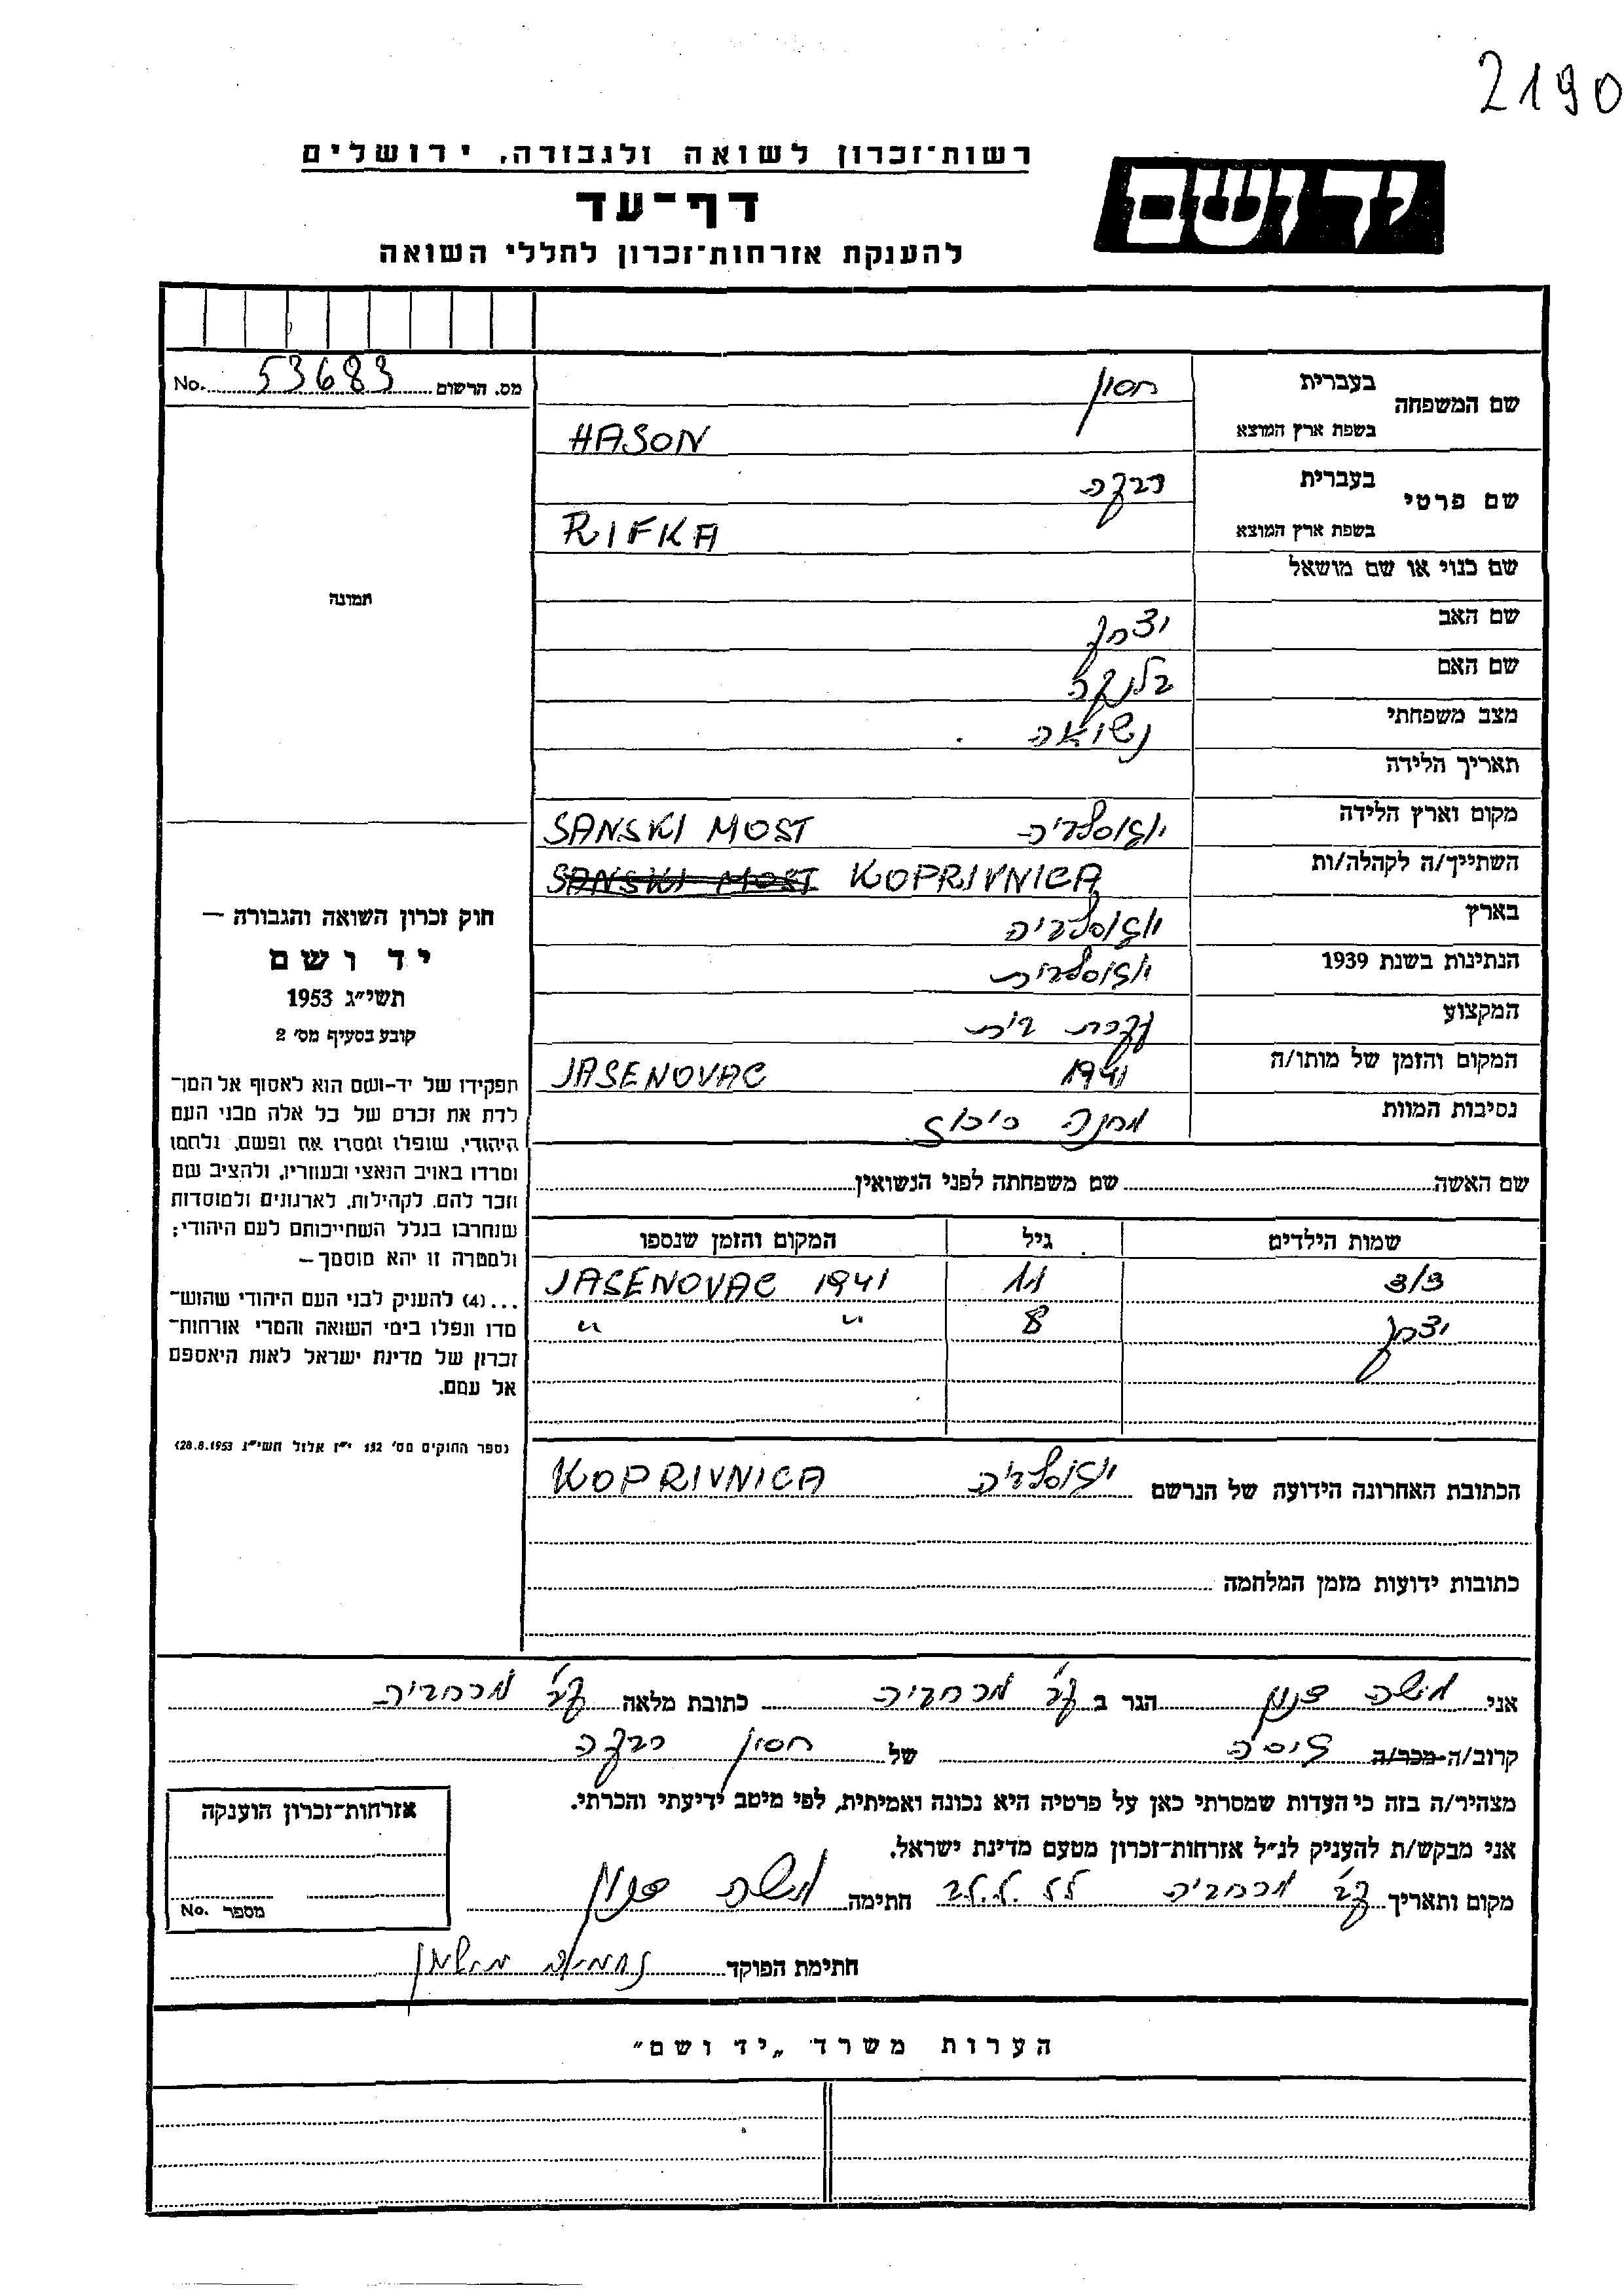 2190
רשות־זכרון לשואה ולגבורה, ירושלים
יד ושם
דף־עד
להענקת אזרחות־זכרון לחללי השואה
מס. הרשום 53683 No.
שם המשפחה בעברית חסון
בשפת ארץ המוצא HASON
שם פרטי בעברית רבקה
בשפת ארץ המוצא RIFKA
שם כנוי או שם מושאל
שם האב יצחק
שם האם בלנקה
מצב משפחתי נשואה
תאריך הלידה
מקום וארץ הלידה יוגוסלביה SANSKI MOST
השתייך/ה לקהלה/ות SANSKI MOST KOPRIVNICA
בארץ יוגוסלביה
הנתינות בשנת 1939 יוגוסלבית
המקצוע עקרת בית
המקום והזמן של מותו/ה 1941 JASENOVAC
נסיבות המוות מחנה ריכוז
שם האשה שם משפחתה לפני הנשואין
שמות הילדים גיל המקום והזמן שנספו
11 JASENOVAC 1941
יצחק 8 " "
הכתובת האחרונה הידועה של הנרשם יוגוסלביה KOPRIVNICA
כתובות ידועות מזמן המלחמה
תמונה
חוק זכרון השואה והגבורה —
יד ושם
תשי"ג 1953
קובע בסעיף מס' 2
תפקידו של יד-ושם הוא לאסוף אל המו־
לדת את זכרם של כל אלה מבני העם
היהודי, שנפלו ומסרו את נפשם, נלחמו
ומרדו באויב הנאצי ובעוזריו, ולהציב שם
וזכר להם, לקהילות, לארגונים ולמוסדות
שנחרבו בגלל השתייכותם לעם היהודי;
ולמטרה זו יהא מוסמך —
...(4) להעניק לבני העם היהודי שהוש־
מדו ונפלו בימי השואה והמרי אזרחות־
זכרון של מדינת ישראל לאות היאספם
אל עמם.
(ספר החוקים מס' 132 י"ז אלול תשי"ג 28.8.1953)
אני משה הגר ב קב' מרחביה כתובת מלאה קב' מרחביה
קרוב/ה-מכר/ה גיסה של חסון רבקה
מצהיר/ה בזה כי העדות שמסרתי כאן על פרטיה היא נכונה ואמיתית, לפי מיטב ידיעתי והכרתי.
אני מבקש/ת להעניק לנ"ל אזרחות־זכרון מטעם מדינת ישראל.
מקום ותאריך קב' מרחביה חתימה משה
חתימת הפוקד נחמיה
אזרחות־זכרון הוענקה
מספר No.
הערות משרד „יד ושם"